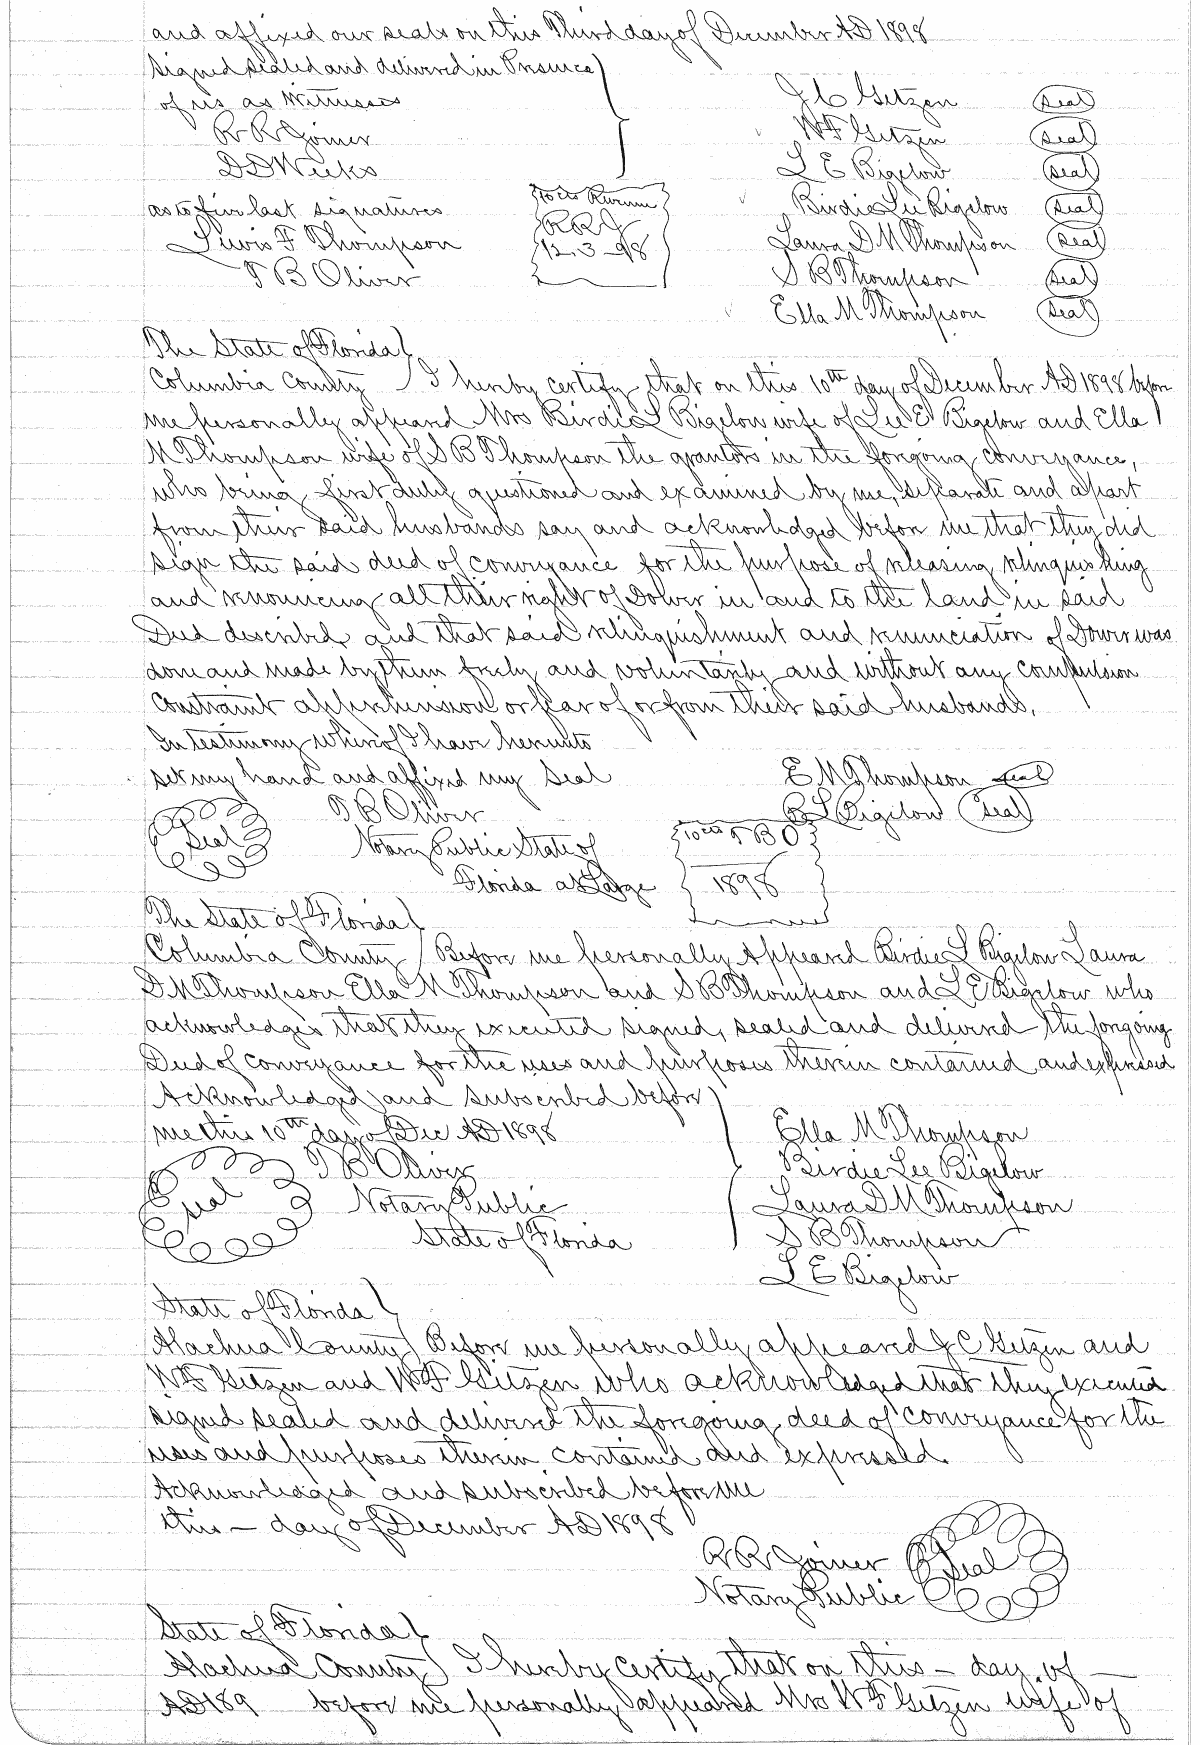 and affixed our seals on this Third day of December AD 1898
Signed sealed and delivered in Presence
of us as Witnesses
R R Joiner
D D Weeks
as to five last signatures
Lewis F Thompson
T B Oliver
10 cts Revenue
R R J
12.3-98
J C Getzen Seal
W F Getzen Seal
L E Bigelow Seal
Birdie Lee Bigelow Seal
Laura D M Thompson Seal
S B Thompson Seal
Ella M Thompson Seal
The State of Florida
Columbia County I hereby certify that on this 10th day of December AD 1898 before
me personally appeared Mrs Birdie L Bigelow wife of Lee E Bigelow and Ella
M Thompson wife of S B Thompson the grantors in the forgoing conveyance,
who being first duly questioned and examined by me, separate and apart
from their said husbands say and acknowledged before me that they did
sign the said deed of conveyance for the purpose of releasing relinquishing
and renouncing all their right of Dower in and to the land in said
Deed described and that said relinquishment and renunciation of Dower was
done and made by them freely and voluntarily and without any compulsion
constraint apprehension or fear of or from their said husbands.
In testimony whereof I have hereunto
set my hand and affixed my Seal
E M Thompson Seal
B L Bigelow Seal
Seal T B Oliver
Notary Public State of
Florida at Large
10 cts T B O
1898
The State of Florida
Columbia County Before me personally Appeared Birdie L Bigelow Laura
D M Thompson Ella M Thompson and S B Thompson and L E Bigelow who
acknowledges that they executed signed, sealed and delivered the forgoing
Deed of conveyance for the uses and purposes therein contained and expressed
Acknowledged and subscribed before
me this 10th day of Dec AD 1898
Seal T B Oliver
Notary Public
State of Florida
Ella M Thompson
Birdie Lee Bigelow
Laura D M Thompson
S B Thompson
L E Bigelow
State of Florida
Alachua County Before me personally appeared J C Getzen and
W F Getzen and W F Getzen who acknowledged that they executed
signed sealed and delivered the foregoing deed of conveyance for the
uses and purposes therein contained and expressed.
Acknowledged and subscribed before me
this - day of December AD 1898
R R Joiner Seal
Notary Public
State of Florida
Alachua County I hereby certify that on this - day of -
AD 189 before me personally appeared Mrs W F Getzen wife of